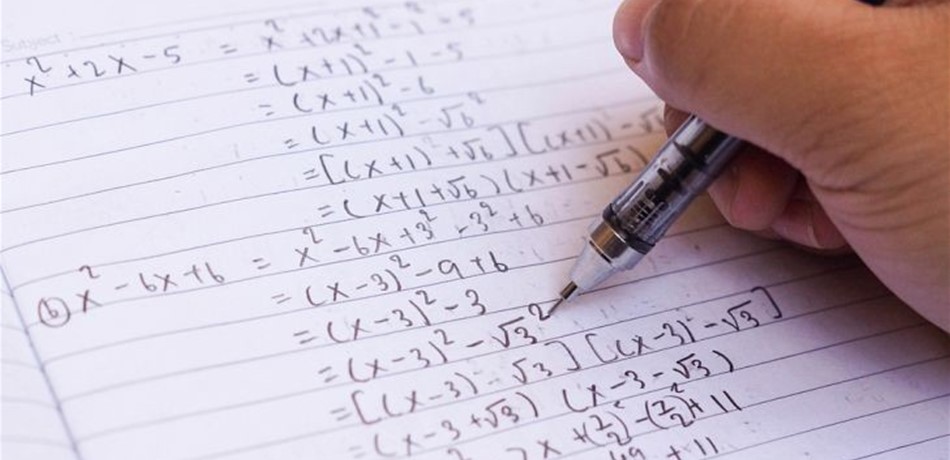 Subject
x² + 2x - 5 = x² + 2x + 1² - 1² - 5
= (x+1)² - 1 - 5
= (x+1)² - 6
= (x+1)² - √6²
= [(x+1) + √6] [(x+1) - √6
= (x+1+√6) (x+1-√6)
(b) x² - 6x + 6 = x² - 6x + 3² - 3² + 6
= (x-3)² - 9 + 6
= (x-3)² - 3
= (x-3)² - √3²
= [(x-3) - √3] [(x-3) - √3]
= (x-3+√3) (x-3-√3)
7x + (7/2)² - (7/2)² + 11
49 + 11